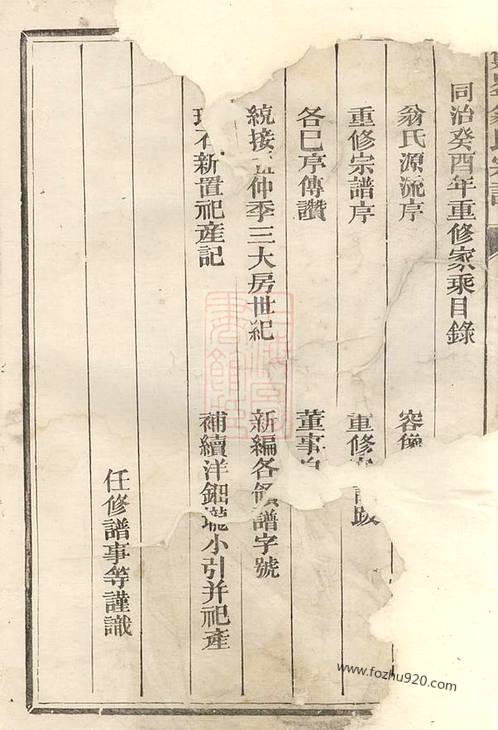 同治癸酉年重修家乘目錄
翁氏源流序
容
重修宗譜序
重修
各已亭傳讚
董事
統接 仲季三大房世紀
新編各領譜字號
新置祀產記
補續洋鈿壠小引并祀產
任修譜事等謹識
www.fozhu920.com